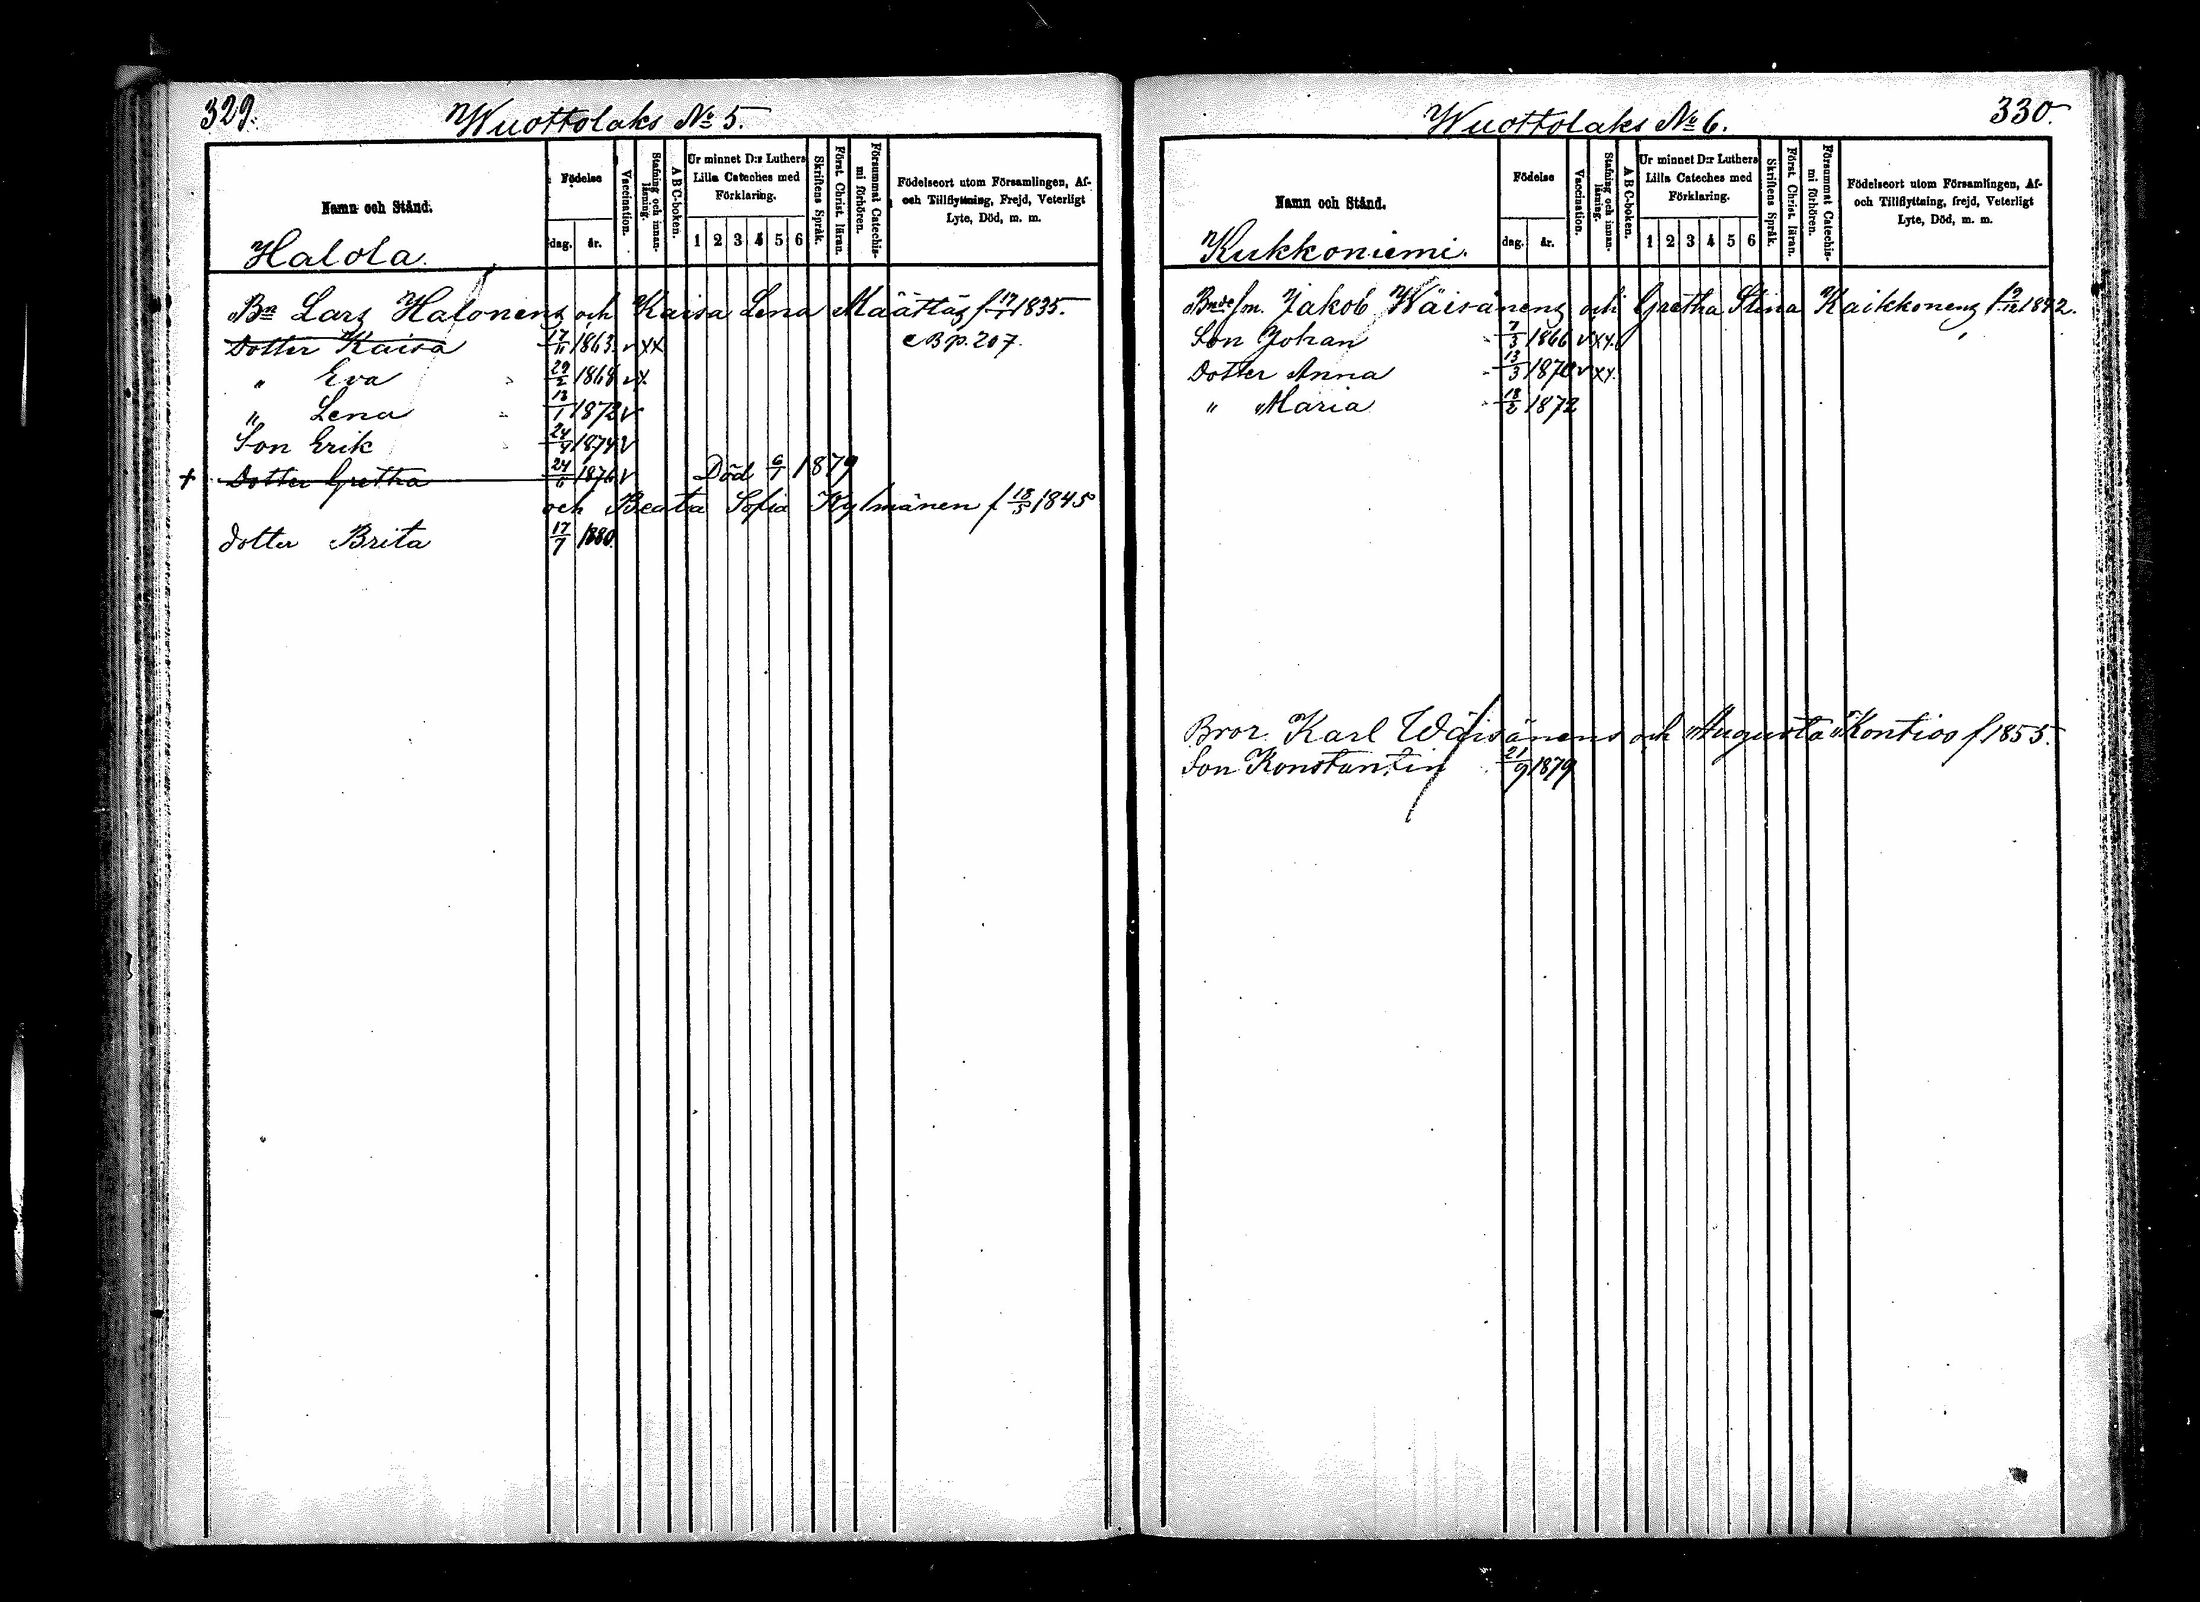 329.
Wuottolaks № 5.
Namn och Stånd.
Födelse
dag.
år.
Vaccination.
Stafning och innan-läsning.
A B C-boken.
Ur minnet D:r Luthers
Lilla Cateches med
Förklaring.
1 2 3 4 5 6
Skriftens Språk.
Först. Christ. läran.
Försummat Catechis-mi förhören.
Födelseort utom Församlingen, Af-
och Tillflyttning, Frejd, Veterligt
Lyte, Död, m. m.
Halola.
Bn Lars Halonens och Kaisa Lena Määttäs f 17/1 1835.
Dotter Kaisa 17/11 1863. v xx c B p. 207.
" Eva 29/2 1868 v x
" Lena 13/1 1872 v
Son Erik 24/4 1874 v
+ Dotter Gretha 24/6 1876 v Död 6/1 1879
och Beata Sofia Kylmänen f 18/5 1845
dotter Brita 17/7 1880.
Wuottolaks № 6.
330.
Namn och Stånd.
Födelse
dag.
år.
Vaccination.
Stafning och innan-läsning.
A B C-boken.
Ur minnet D:r Luthers
Lilla Cateches med
Förklaring.
1 2 3 4 5 6
Skriftens Språk.
Först. Christ. läran.
Försummat Catechis-mi förhören.
Födelseort utom Församlingen, Af-
och Tillflyttning, frejd, Veterligt
Lyte, Död, m. m.
Kukkoniemi.
Jakob Wäisänens och Gretha Stina Kaikkonens f 9/12 1842.
Son Johan 7/3 1866 v xx.
Dotter Anna 13/3 1870 v xx.
" Maria 18/2 1872
Bror Karl Wäisänens och Augusta Kontios f 1855.
Son Konstantin 21/9 1879